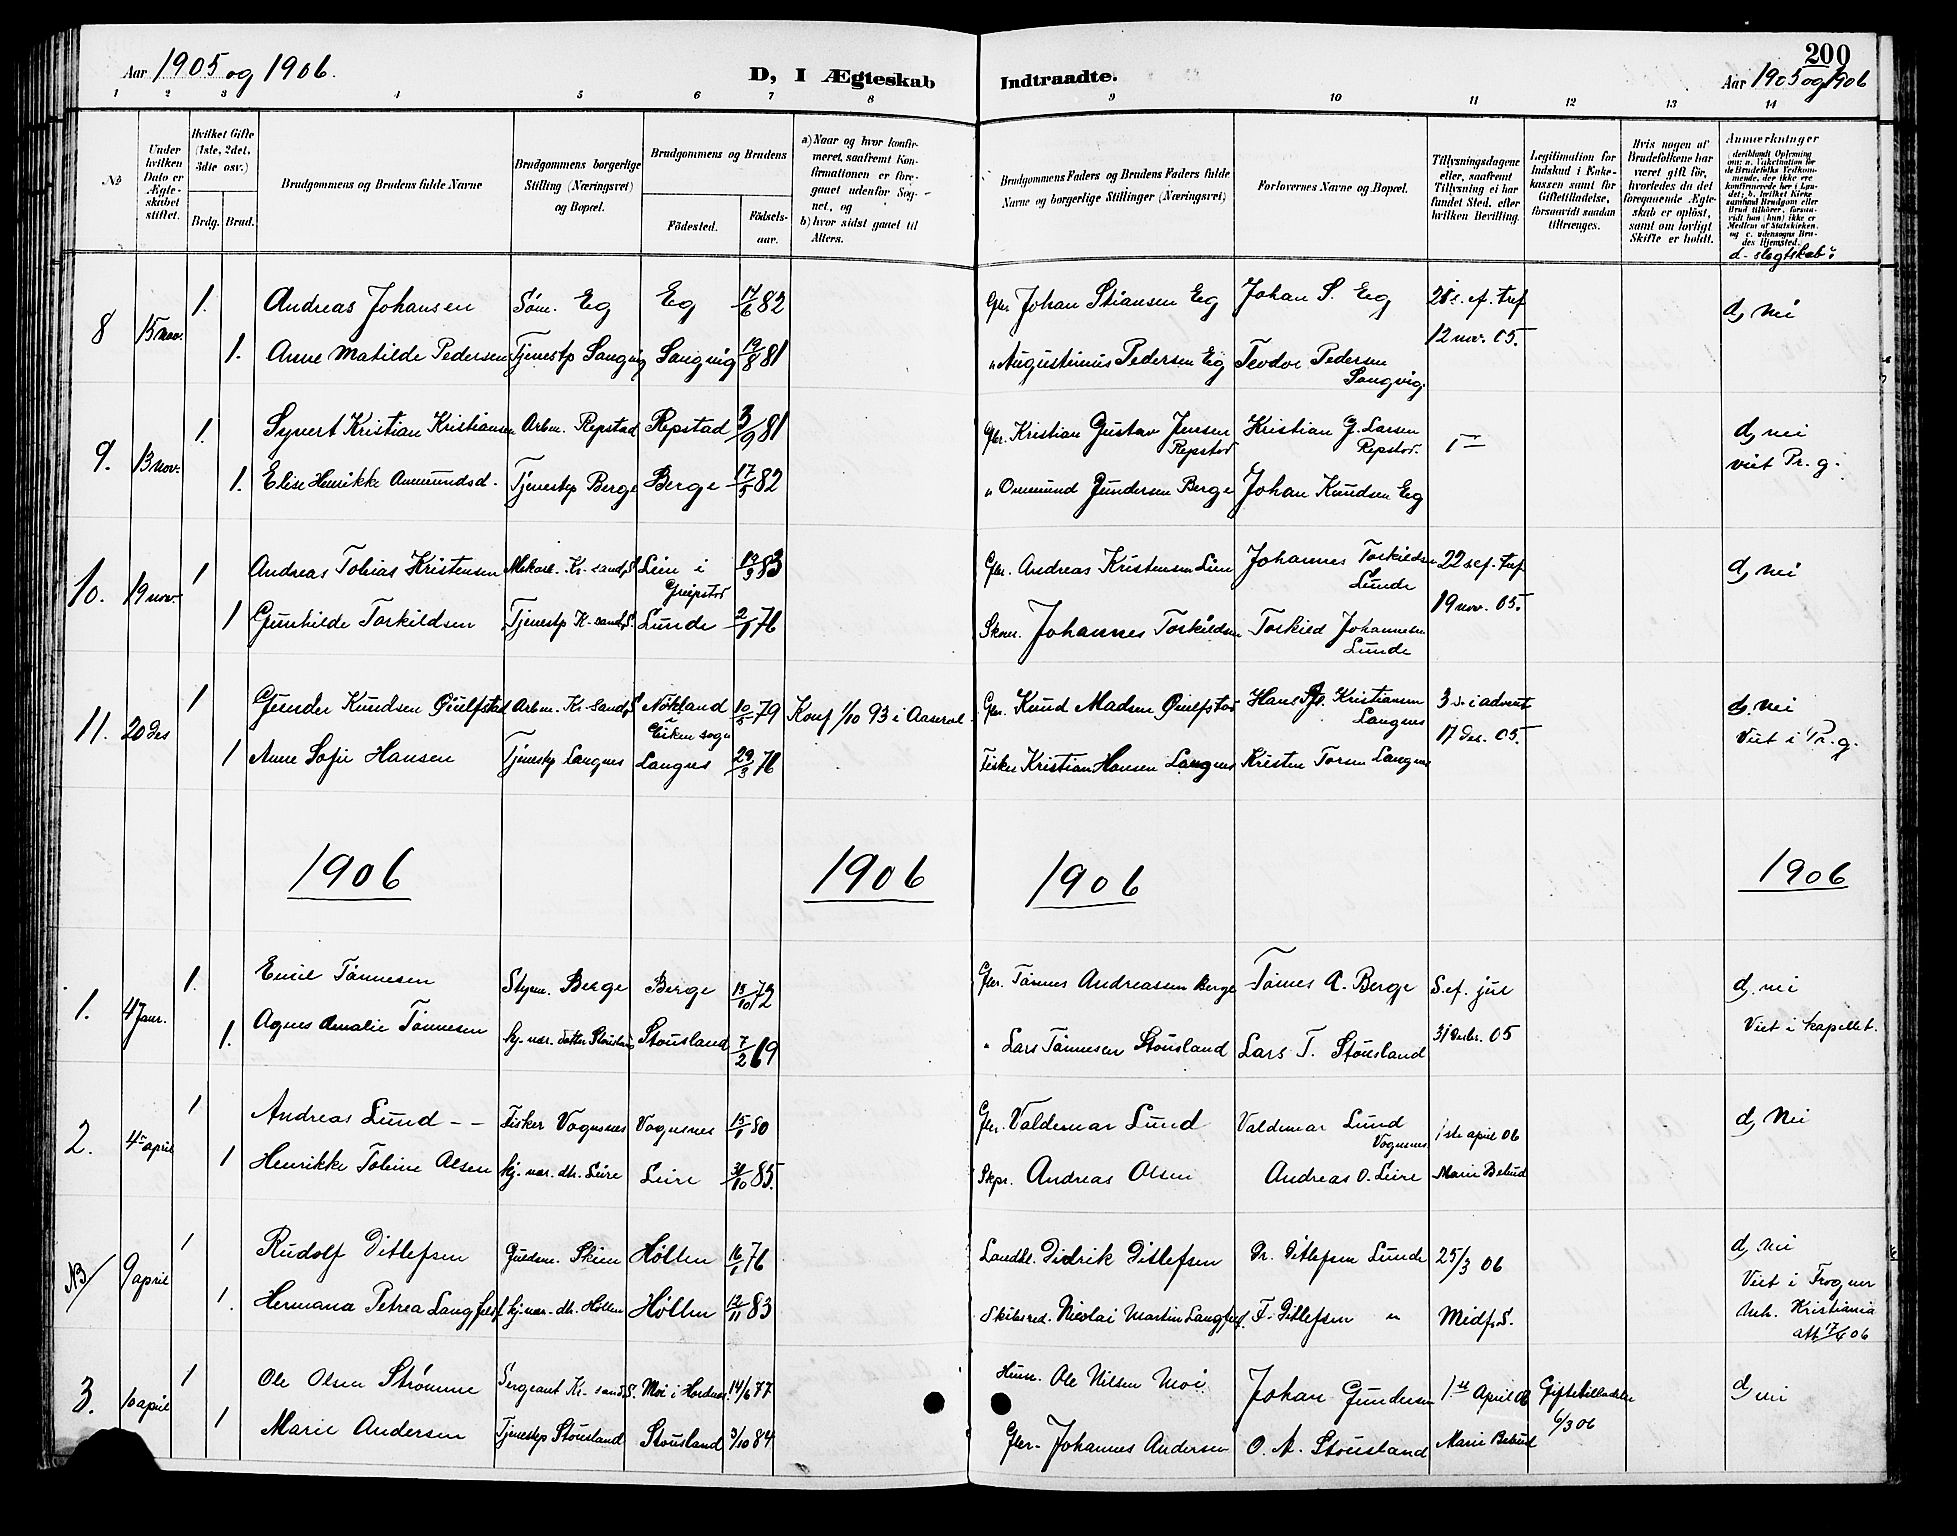 200
Aar 1905 og 1906.
D, I Ægteskab Indtraadte.
Aar 1905 og 1906
1 2 3 4 5 6 7 8 9 10 11 12 13 14
№
Under hvilken Dato er Ægteskabet stiftet.
Hvilket Gifte (1ste, 2det, 3die osv.)
Brdg. Brud.
Brudgommens og Brudens fulde Navne
Brudgommens borgerlige Stilling (Næringsvei) og Bopæl.
Brudgommens og Brudens
Födested. Födselsaar.
a) Naar og hvor konfirmeret, saafremt Konfirmationen er foregaaet udenfor Sognet, og
b) hvor sidst gaaet til Alters.
Brudgommens Faders og Brudens Faders fulde Navne og borgerlige Stillinger (Næringsvei)
Forlovernes Navne og Bopæl.
Tillysningsdagene eller, saafremt Tillysning ei har fundet Sted, efter hvilken Bevilling.
Legitimation for Indskud i Enkekassen samt for Giftetilladelse, forsaavidt saadan tiltrænges.
Hvis nogen af Brudefolkene har været gift för, hvorledes da det foregaaende Ægteskab er oplöst, samt om lovligt Skifte er holdt.
Anmærkninger
d- slegtskab?
8 15 nov. 1. Andreas Johansen Söm. Eg Eg 17/6 82 Gbr. Johan Stiansen Eg Johan S. Eg 21 s. ef. tref d, nei
1. Anne Matilde Pedersen Tjenestp Sangvig Sangvig 19/8 81 " Augustinus Pedersen Eig Teodor Pedersen Sangvig. 12 nov. 05.
9. 13 nov. 1. Syvert Kristian Kristiansen Arbm. Repstad Repstad 3/9 81 Gbr. Kristian Gustav Jensen Repstad Kristian G. Larsen Repstad. d, nei
1. Elise Henrikke Ommundsd. Tjenestp Berge Berge 17/5 82 " Ommund Gundersen Berge Johan Knudsen Eg viet Pr. g.
10. 19 nov. 1 Andreas Tobias Kristensen Kr. sand. S. Lien i Greipstad 83 Gbr. Andreas Kristensen Lien Johannes Torkildsen Lunde 22 s ef. tref d, nei
1 Gunhilde Torkildsen Tjenestp K. sand. S. Lunde 2/1 76 Johannes Torkildsen Torkild Johannesen Lunde 19 nov. 05.
11. 20 des 1 Gunder Knudsen Arbm. Kr. sand. S Nökland i Eiken sogn 10/5 79 Konf 1/10 93 i Aaseral Gbr. Knud Madsen Hans Kristiansen Langnes 3 s. i advent d, nei
1 Anne Sofie Hansen Tjenestp Langnes Langnes 29/3 76 Fisker Kristian Hansen Langnes Kristen Torsen Langnes 17 des. 05. Viet i Pr. g.
1906 1906 1906 1906
1. 4 Janr. 1. Emil Tönnesen Styrm. Berge Berge 13/10 72 Gbr. Tönnes Andreassen Berge Tönnes A. Berge S. ef. jul d, nei
1. Agnes Amalie Tönnesen hj. vær. datter Stousland Stousland 7/2 69 " Lars Tönnesen Stousland Lars T. Stousland 31 Decbr. 05 Viet i kapellet.
2. 4 april 1 Andreas Lund - - Fisker Vognsnes Vognsnes 15/1 80 Gbr. Valdemar Lund Valdemar Lund Vognsnes 1ste april 06 d, Nei
1 Henrikke Tobine Olsen hj. vær. dtr. Leire Leire 85. Skpr. Andreas Olsen Andreas O. Leire Marie Bebud
NB/ 9 april 1 Rudolf Ditlefsen Guldsm. Skien Höllen 16/1 76 Landhl. Didrik Ditlefsen Dr. Ditlefsen Lunde 25/3 06 d, nei
1. Hermana Petrea Langfeldt hj. vær. dtr. Höllen Höllen 12/11 83 Skibsred. Nicolai Martin Langfeldt. F. Ditlefsen " Midf. S. Viet i Frogner Kristiania att 17/4 06
3. 10 april 1 Ole Olsen Strömme Sergeant Kr. sand. S. Moi i 14/6 77 Ole Nilsen Moi Johan Gundersen 1ste April 06 Giftetilladelse 6/3 06 d, nei
1 Marie Andersen Tjenestp Stousland Stousland 3/10 84 Gbr. Johannes Andersen O. A. Stousland Marie Bebud